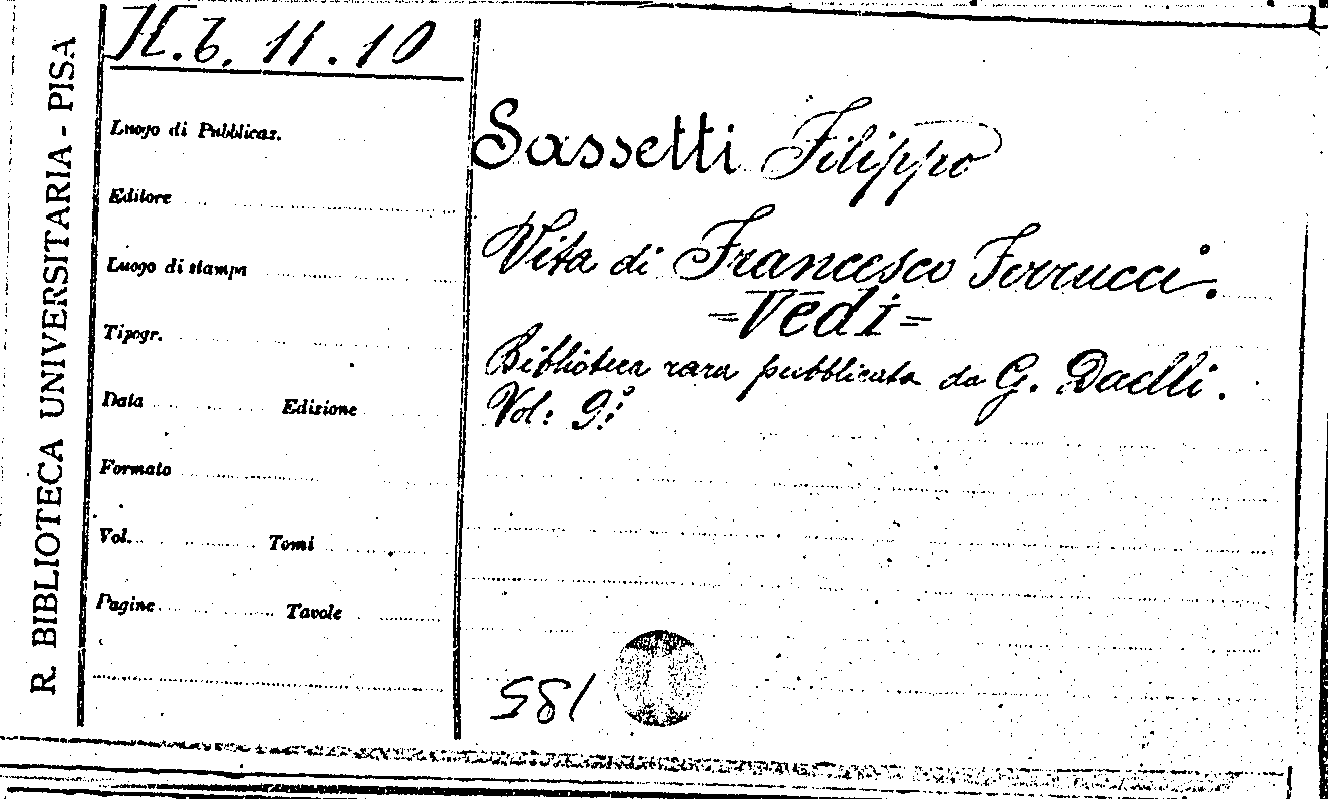 R. BIBLIOTECA UNIVERSITARIA - PISA
H.6. 11.10
Luogo di Pubblicaz.
Editore
Luogo di stampa
Tipogr.
Data Edizione
Formato
Vol. Tomi
Pagine Tavole
Sassetti Filippo
Vita di Francesco Ferrucci.
=Vedi=
Biblioteca rara pubblicata da G. Daelli.
Vol: 9º
185